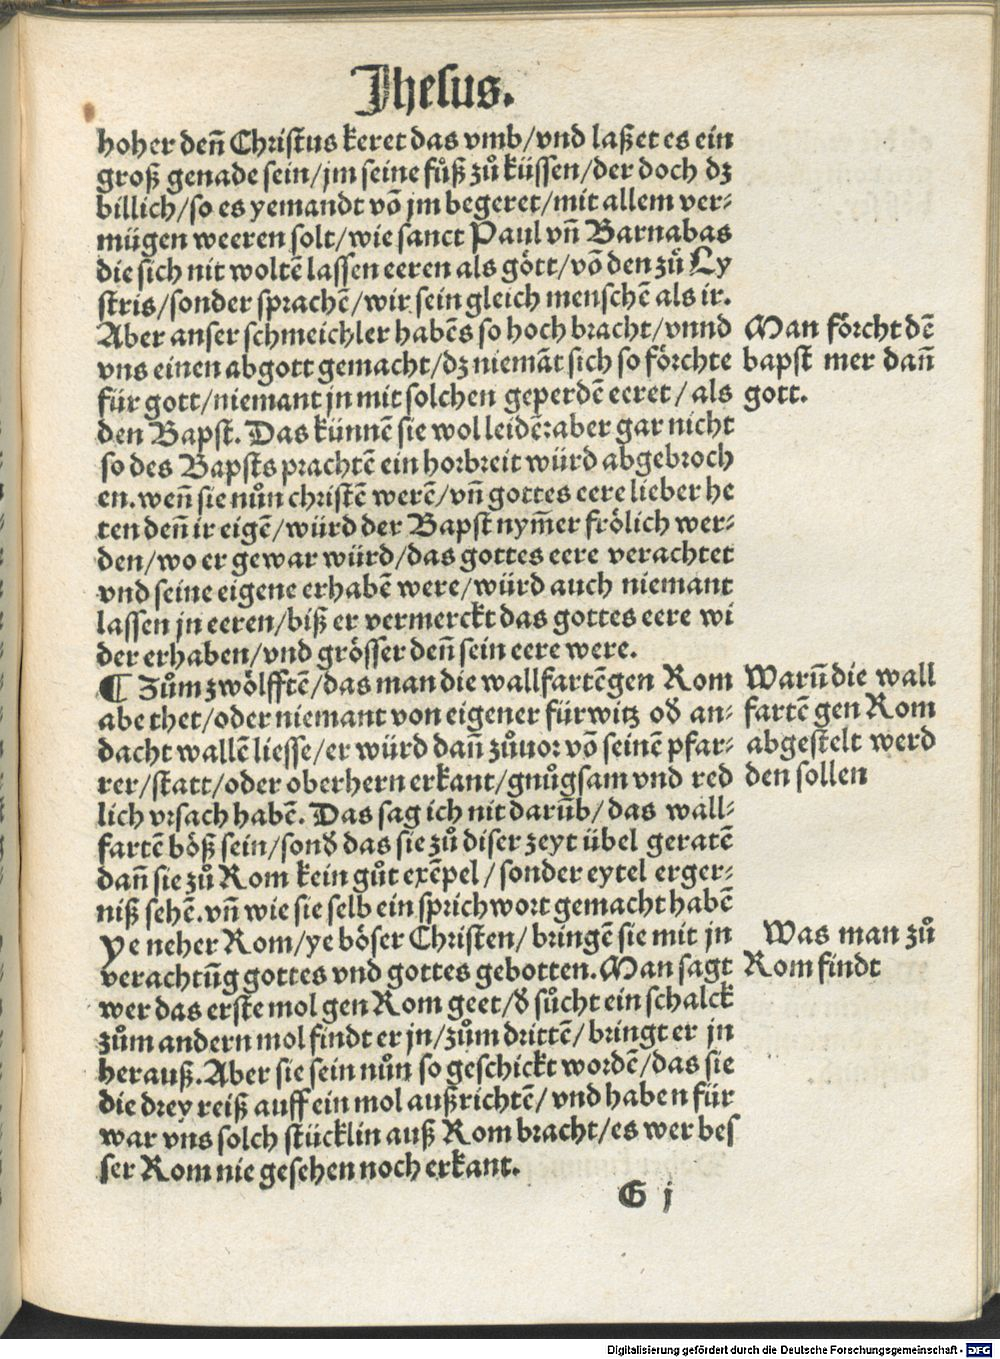 Jhesus.
hoher deñ Christus keret das vmb/vnd laßet es ein
groß genade sein/jm seine fuͦß zuͦ küssen/der doch dz
billich/so es yemandt võ jm begeret/mit allem ver⸗
mügen weeren solt/wie sanct Paul vñ Barnabas
die sich nit woltẽ lassen eeren als gött/võ den zuͦ Ly
stris/sonder sprachẽ/wir sein gleich menschẽ als ir.
Aber anser schmeichler habẽs so hoch bracht/vnnd
vns einen abgott gemacht/dz niemãt sich so förchte
für gott/niemant jn mit solchen geperdẽ eeret/als
den Bapst. Das künnẽ sie wol leidẽ:aber gar nicht
so des Bapsts prachtẽ ein horbreit würd abgebroch
en.weñ sie nuͦn christẽ werẽ/vñ gottes eere lieber he
ten deñ ir eigẽ/würd der Bapst nym̃er frölich wer⸗
den/wo er gewar würd/das gottes eere verachtet
vnd seine eigene erhabẽ were/würd auch niemant
lassen jn eeren/biß er vermerckt das gottes eere wi
der erhaben/vnd grösser deñ sein eere were.
¶ Zuͦm zwölfftẽ/das man die wallfartẽ gen Rom
abe thet/oder niemant von eigener fürwitz oď an⸗
dacht wallẽ liesse/er würd dañ zuͦuor võ seinẽ pfar⸗
rer/statt/oder oberhern erkant/gnuͦgsam vnd red
lich vrsach habẽ. Das sag ich nit darũb/das wall⸗
fartẽ böß sein/sonď das sie zuͦ diser zeyt übel geratẽ
dañ sie zuͦ Rom kein guͦt exẽpel/sonder eytel erger⸗
niß sehẽ.vñ wie sie selb ein sprichwort gemacht habẽ
ye neher Rom/ye böser Christen/bringẽ sie mit jn
verachtũg gottes vnd gottes gebotten.Man sagt
wer das erste mol gen Rom geet/ď suͦcht ein schalck
zuͦm andern mol findt er jn/zuͦm drittẽ/bringt er jn
herauß.Aber sie sein nuͦn so geschickt wordẽ/das sie
die drey reiß auff ein mol außrichtẽ/vnd haben für
war vns solch stücklin auß Rom bracht/es wer bes
ser Rom nie gesehen noch erkant.
G j
Man förcht dẽ
bapst mer dañ
gott.
Warũ die wall
fartẽ gen Rom
abgestelt werd
den sollen
Was man zuͦ
Rom findt
Digitalisierung gefördert durch die Deutsche Forschungsgemeinschaft - DFG